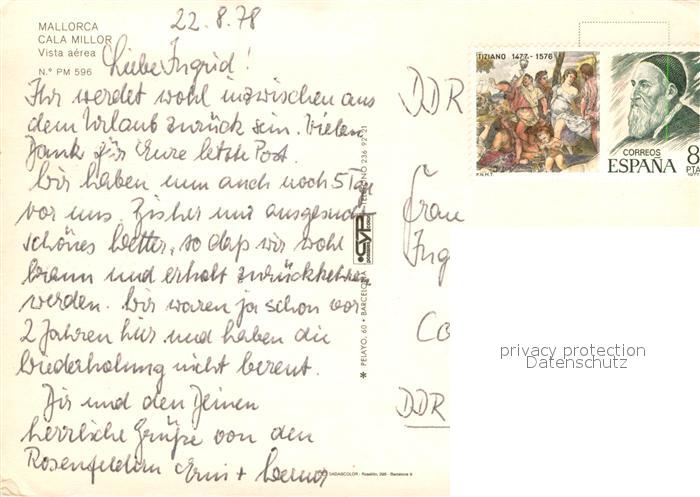 MALLORCA
CALA MILLOR
Vista aérea
N.° PM 596
22.8.78
Liebe Ingrid!
Ihr werdet wohl inzwischen aus
dem Urlaub zurück sein. Vielen
Dank für Eure letzte Post.
Wir haben nun auch noch 5 Tage
vor uns. Bisher nur ausgesucht
schönes Wetter, so daß wir wohl
braun und erholt zurückkehren
werden. Wir waren ja schon vor
2 Jahren hier und haben die
Wiederholung nicht bereut.
Dir und den Deinen
herrliche Grüße von den
Rosenfeldern Erni + Werner
DDR
Frau
Ing
Co
DDR
TIZIANO 1477-1576
F.N.M.T.
CORREOS
ESPAÑA
8
PTA
1977
CYP
PELAYO, 60 • BARCELONA
TELEFONO 236 92 21
privacy protection
Datenschutz